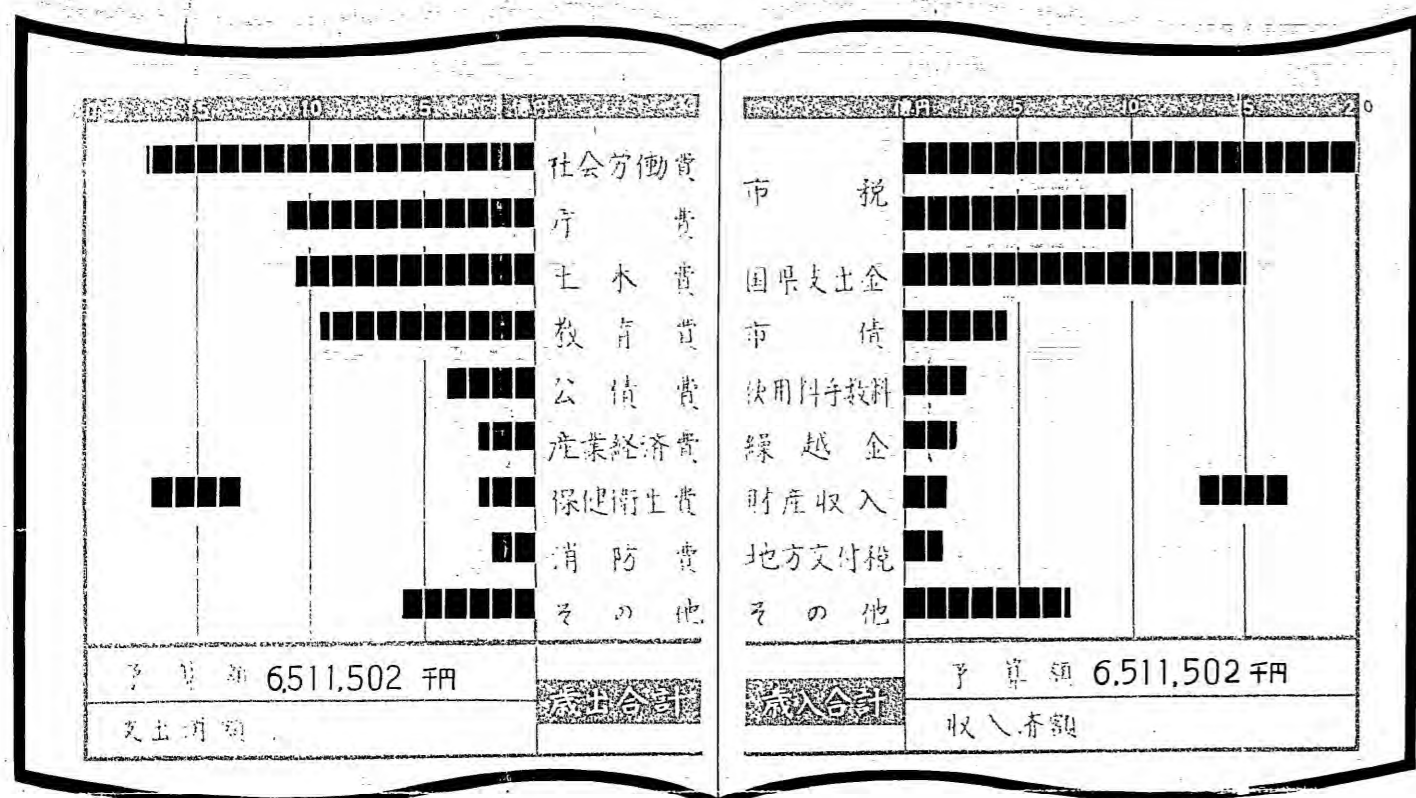 15 10 5 億円
社会労働費
庁費
土木費
教育費
公債費
産業経済費
保健衛生費
消防費
その他
予算額 6,511,502 千円
支出済額
歳出合計
億円 5 10 15 20
市税
国県支出金
市債
使用料手数料
繰越金
財産収入
地方交付税
その他
歳入合計
予算額 6,511,502 千円
収入済額